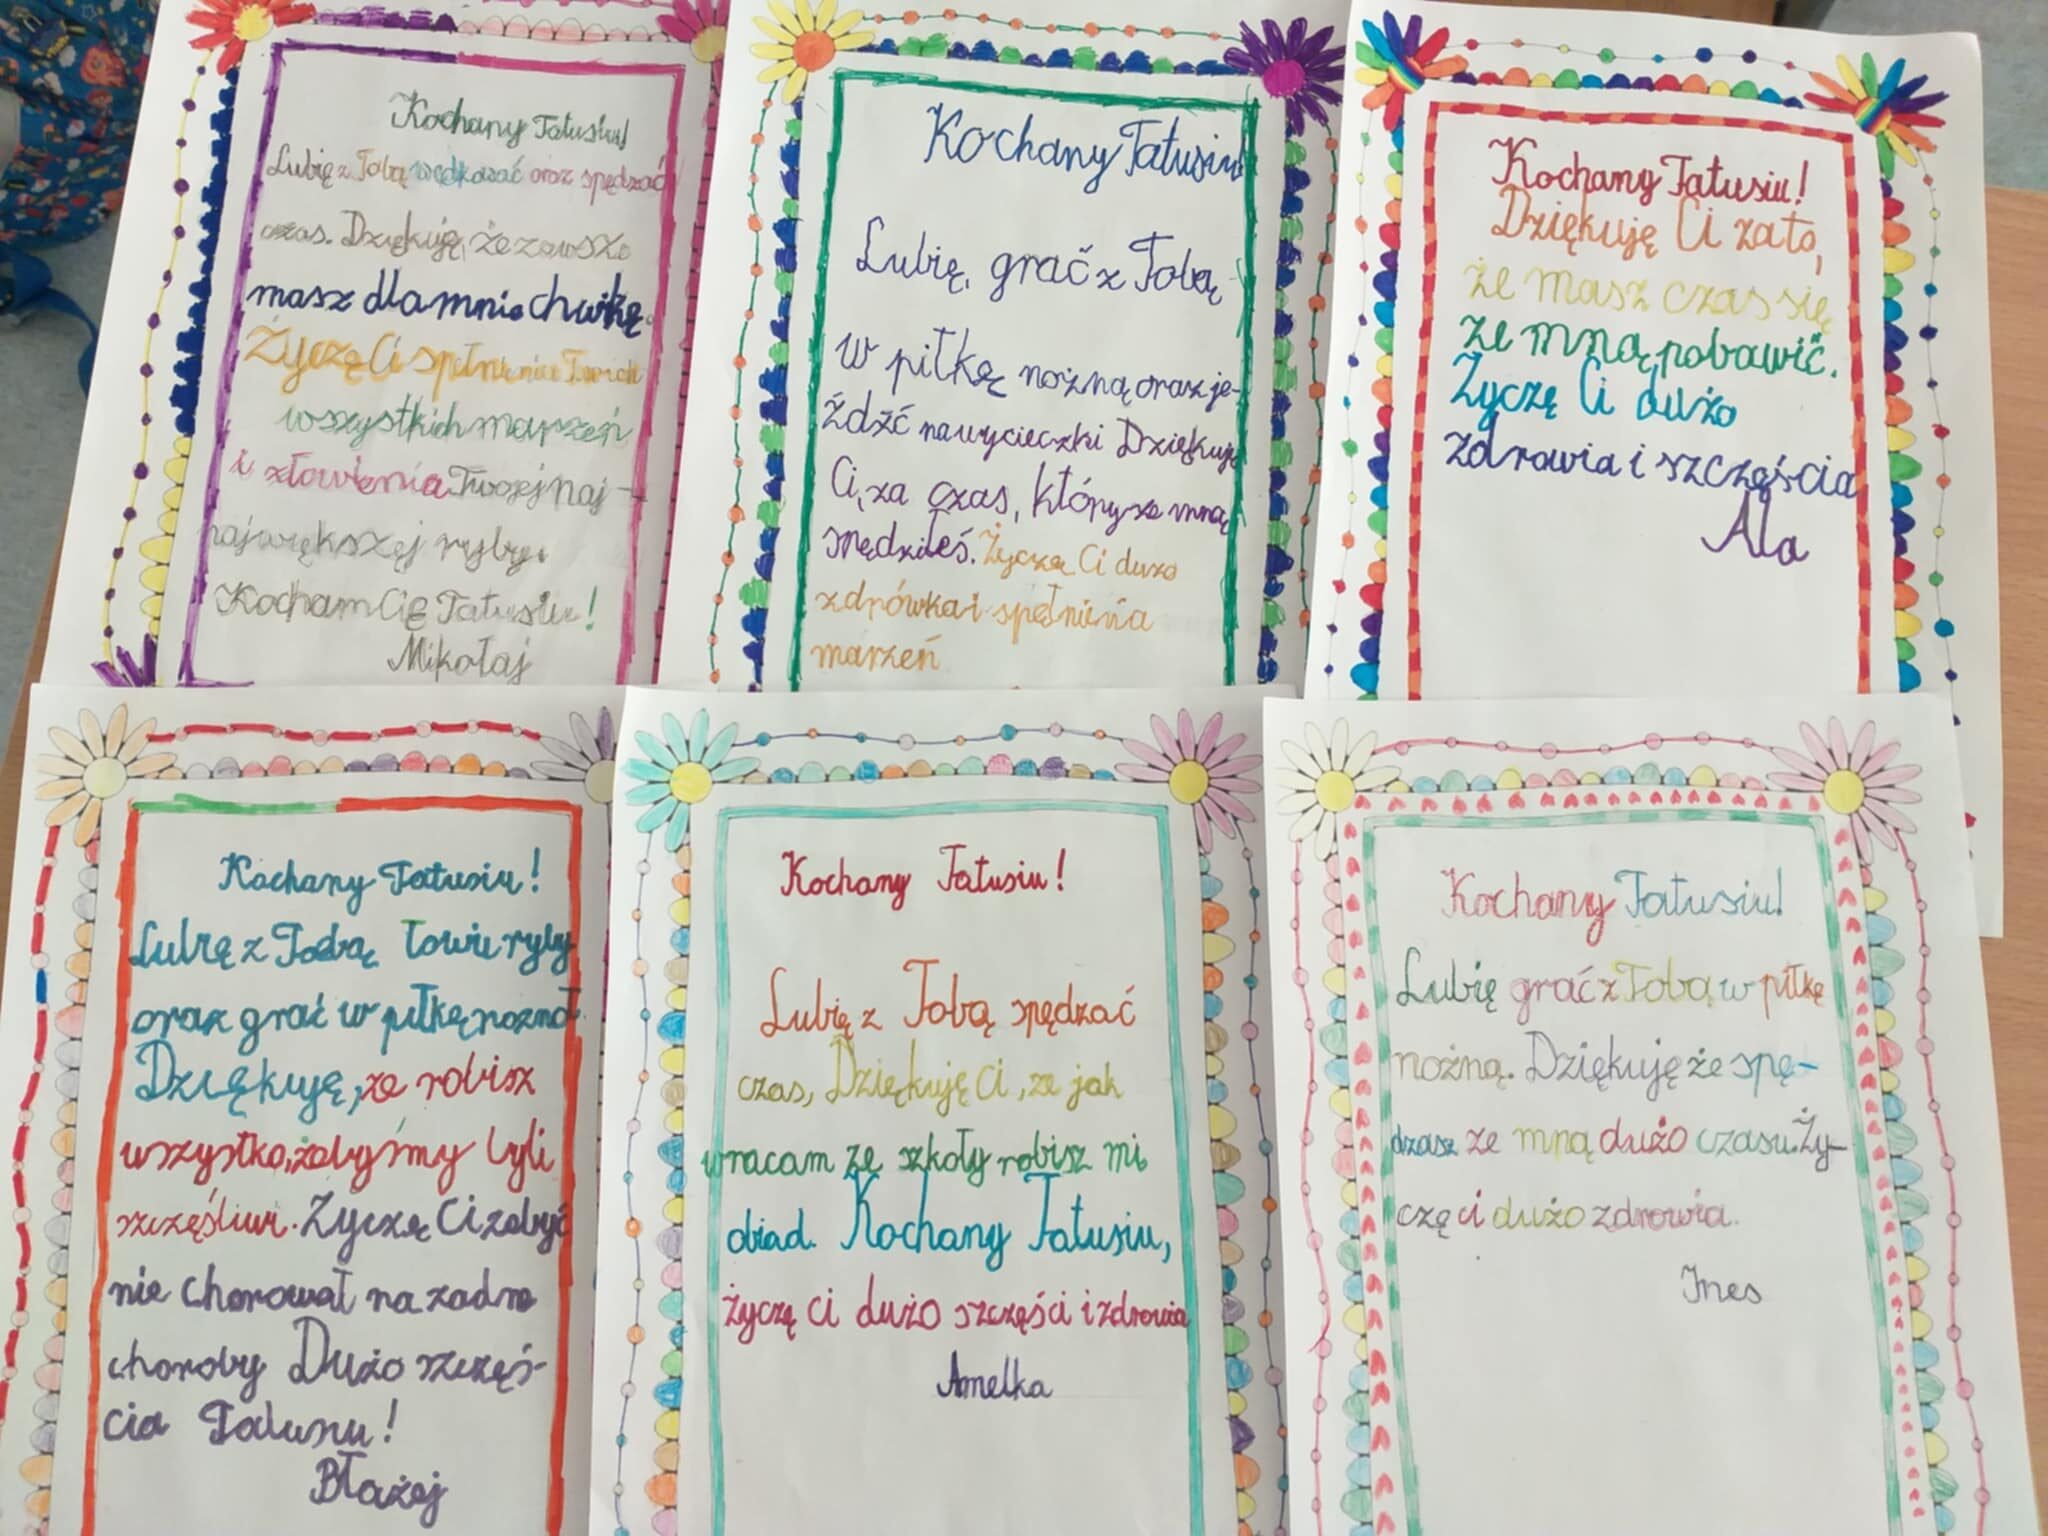 Kochany Tatusiu!
Lubię z Tobą wędkować oraz spędzać
czas. Dziękuję, że zawsze
masz dla mnie chwilkę.
Życzę Ci spełnienia Twoich
wszystkich marzeń
i złowienia Twojej naj-
największej ryby.
Kocham Cię Tatusiu!
Mikołaj
Kochany Tatusiu!
Lubię, grać z Tobą
w piłkę nożną oraz je-
źdźć na wycieczki Dziękuję
Ci, za czas, który ze mną
spędziłeś. Życzę Ci dużo
zdrówka i spełnienia
marzeń
Kochany Tatusiu!
Dziękuję Ci za to,
że masz czas się
ze mną pobawić.
Życzę Ci dużo
zdrowia i szczęścia
Ala
Kochany Tatusiu!
Lubię z Tobą łowić ryby
oraz grać w piłkę nożną.
Dziękuję, że robisz
wszystko, żebyśmy byli
szczęśliwi. Życzę Ci żebyć
nie chorował na żadne
choroby Dużo szczęś-
cia Tatusiu!
Błażej
Kochany Tatusiu!
Lubię z Tobą spędzać
czas, Dziękuję Ci, że jak
wracam ze szkoły robisz mi
obiad. Kochany Tatusiu,
życzę Ci dużo szczęści i zdrowia
Amelka
Kochany Tatusiu!
Lubię grać z Tobą w piłkę
nożną. Dziękuję że spę-
dzasz ze mną dużo czasu. Ży-
czę ci dużo zdrowia.
Ines